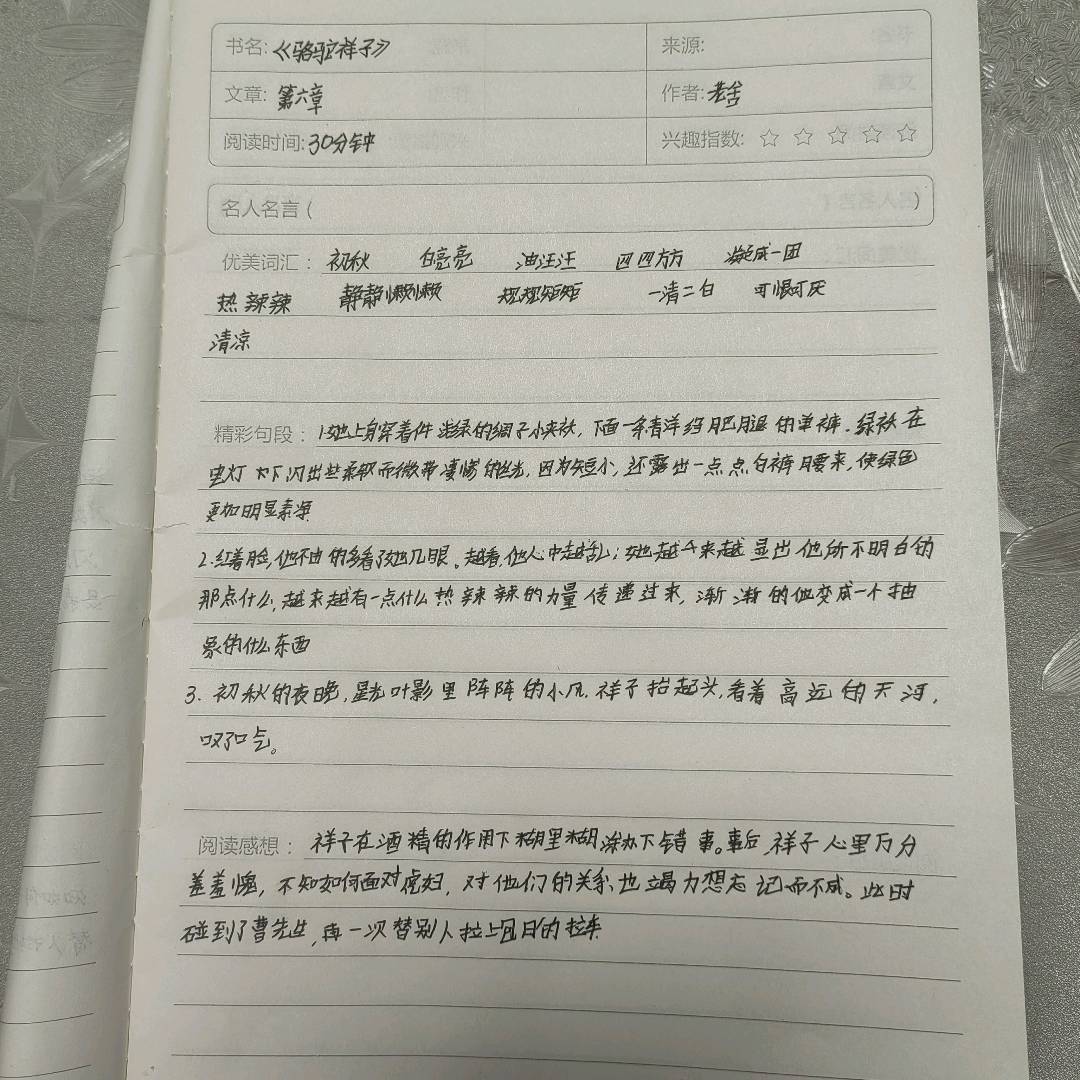 书名:《骆驼祥子》 来源:
文章: 第六章 作者: 老舍
阅读时间: 30分钟 兴趣指数: ☆ ☆ ☆ ☆ ☆
名人名言 ( )
优美词汇： 初秋 白亮亮 油汪汪 四四方方 凝成一团
热辣辣 静静懒懒 规规矩矩 一清二白 可恨可厌
清凉
精彩句段： 1.她上身穿着件浅绿的绸子小夹袄，下面一条青洋绉肥腿的单裤.绿袄在
电灯下闪出些柔软而微带凄惨的丝光，因为短小，还露出一点点白裤腰来，使绿色
更加明显素净
2.红着脸，他不由的多看了她几眼。越看，他心中越乱；她越来越显出他所不明白的
那点什么，越来越有一点什么热辣辣的力量传递过来，渐渐的她变成一个抽
象的什么东西
3. 初秋的夜晚，星光叶影里阵阵的小风，祥子抬起头，看着高远的天河，
叹了口气。
阅读感想： 祥子在酒精的作用下糊里糊涂办下错事。事后，祥子心里万分
羞羞愧，不知如何面对虎妞，对他们的关系也竭力想忘记而不成。此时
碰到了曹先生，再一次替别人拉上包月的拉车